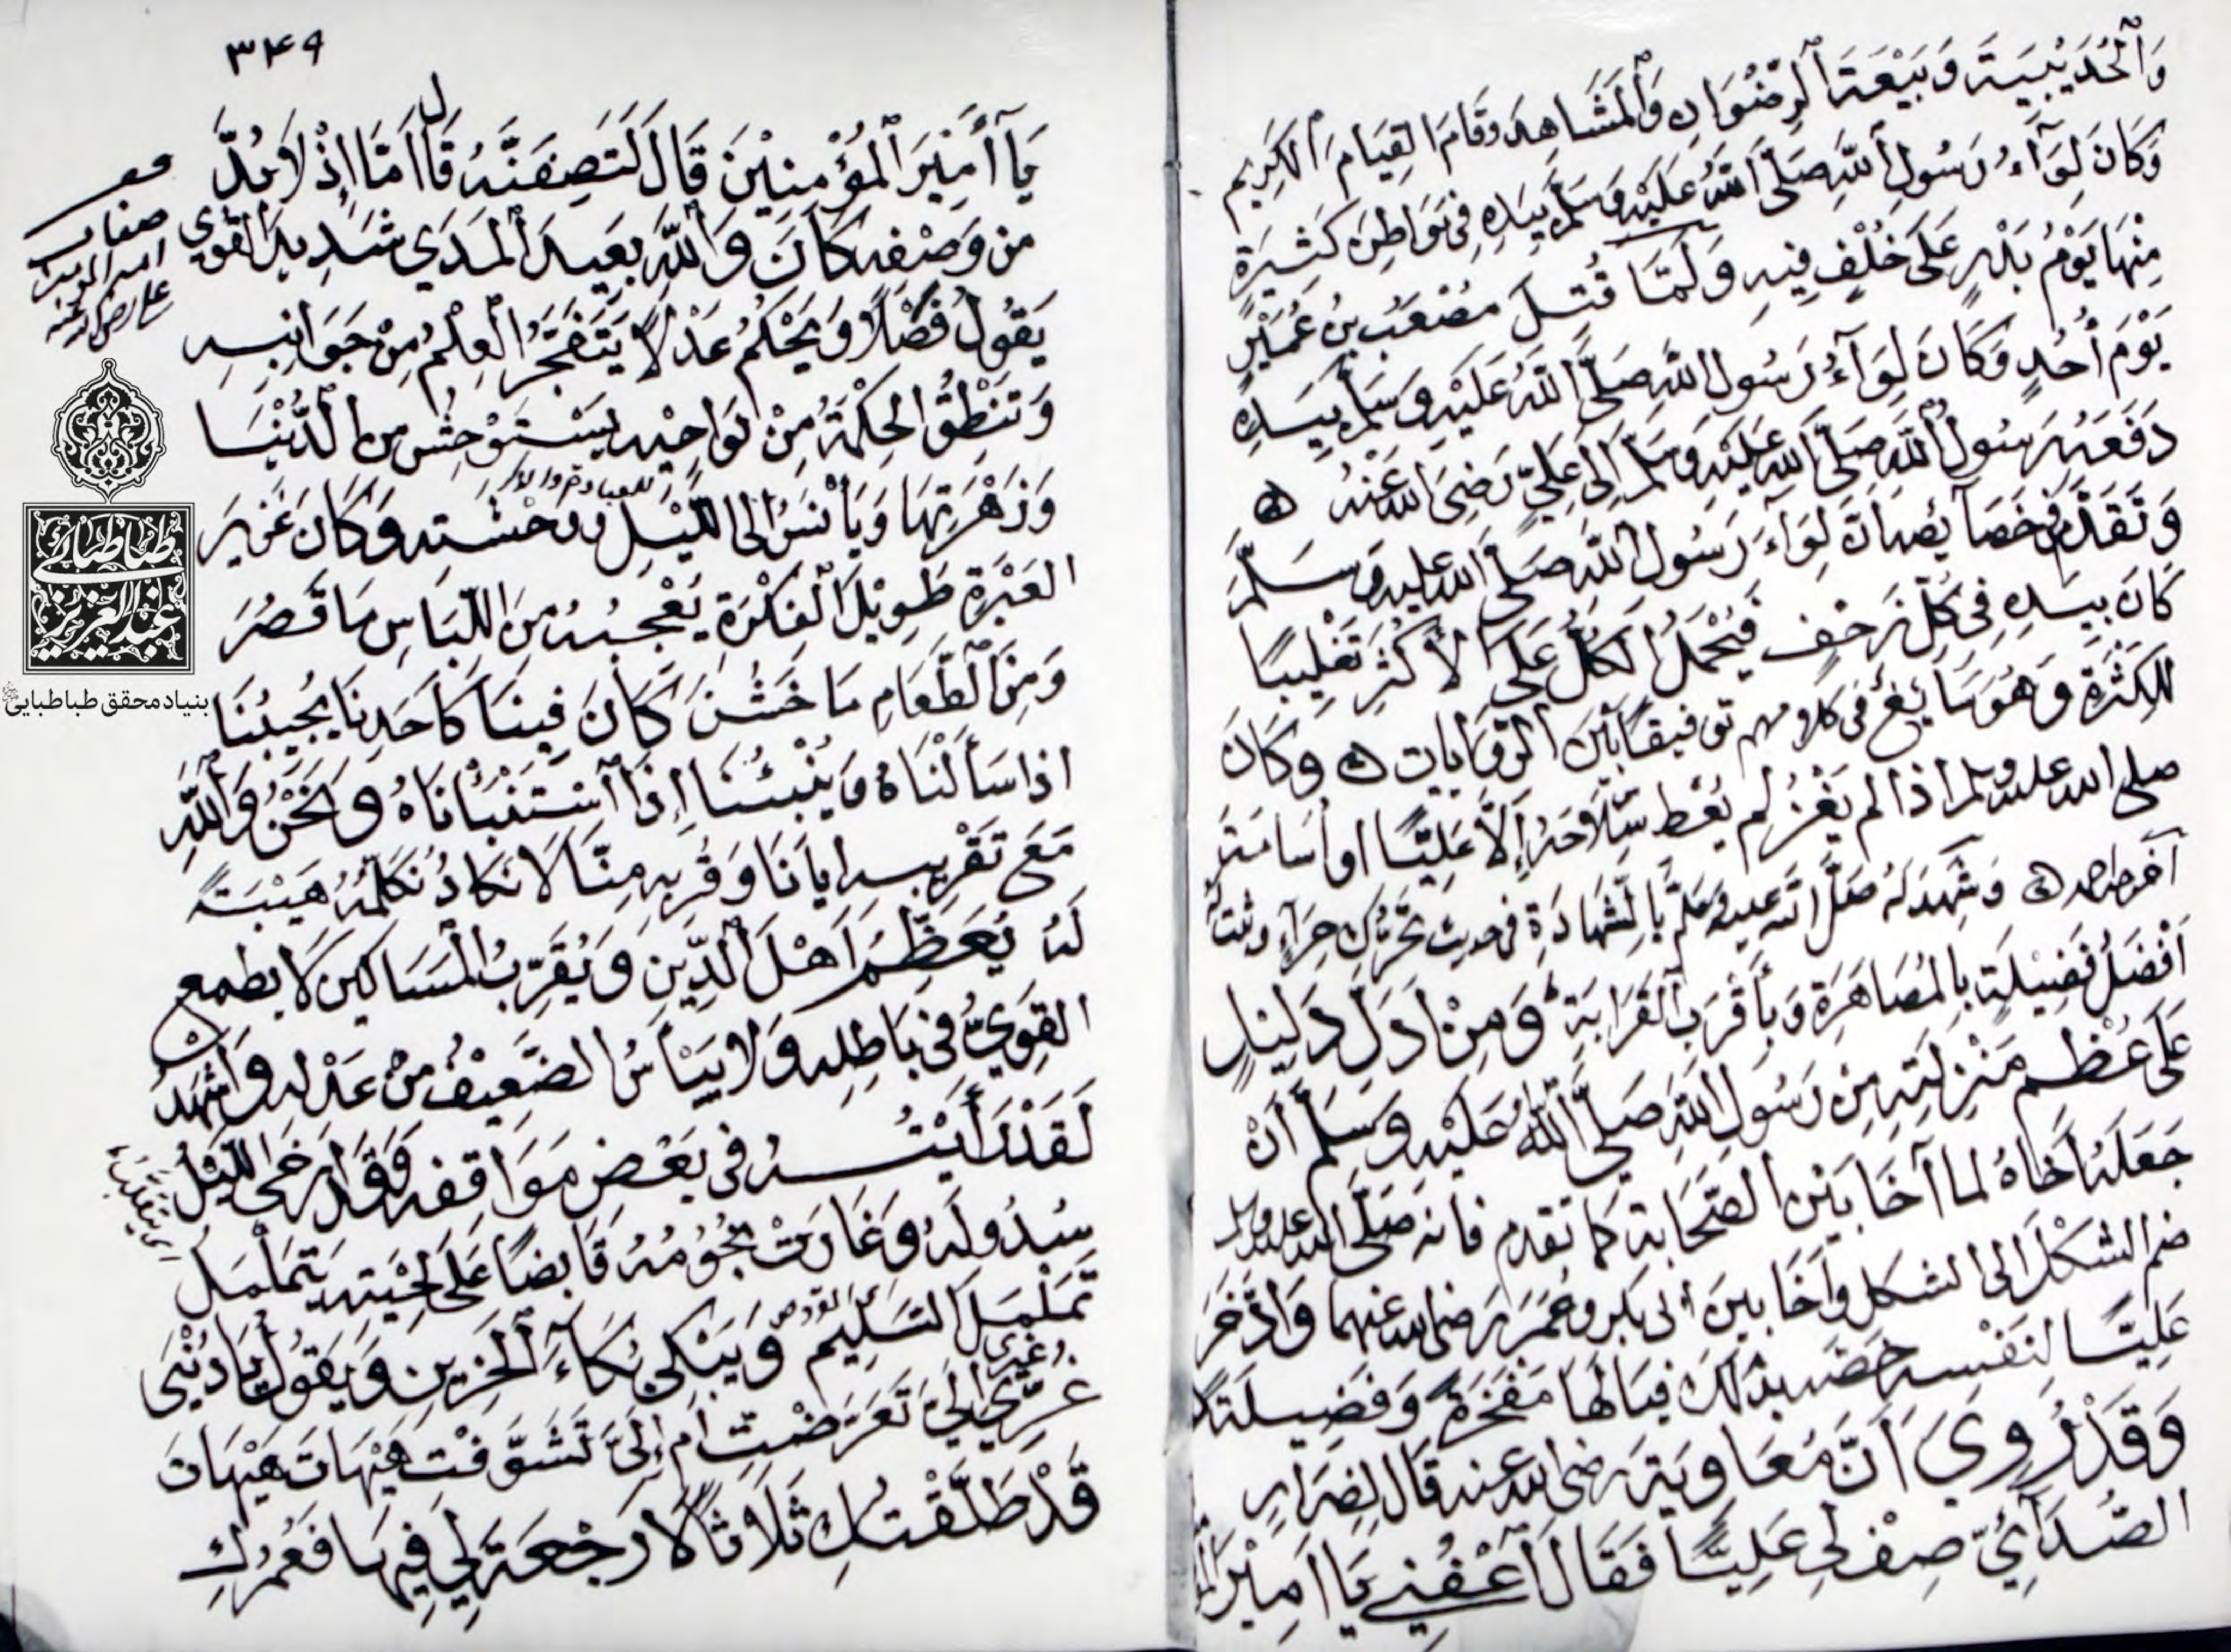 وَٱلْحُدَيْبِيَةَ وَبَيْعَةَ ٱلرِّضْوَانِ وَٱلْمَشَاهِدَ وَقَامَ القِيَامَ ٱلْكَرِيم
وَكَانَ لِوَآءُ رَسُولِ ٱللَّهِ صَلَّى ٱللَّهُ عَلَيْهِ وَسَلَّمَ بِيَدِهِ فِى مَوَاطِنَ كَثِيرَةٍ
مِنْهَا يَوْمُ بَدْرٍ عَلَى خُلْفٍ فِيهِ وَلَمَّا قُتِلَ مُصْعَبُ بْنُ عُمَيْرٍ
يَوْمَ أُحُدٍ وَكَانَ لِوَآءُ رَسُولِ اللَّهِ صَلَّى اللَّهُ عَلَيْهِ وَسَلَّمَ بِيَدِهِ
دَفَعَهُ رَسُولُ ٱللَّهِ صَلَّى اللَّهُ عَلَيْهِ وَسَلَّمَ إِلَى عَلِيٍّ رَضِىَ اللَّهُ عَنْهُ
وَتَقَدَّمَ فِى خَصَآئِصِهِ أَنَّ لِوَآءَ رَسُولِ اللَّهِ صَلَّى اللَّهُ عَلَيْهِ وَسَلَّمَ
كَانَ بِيَدِهِ فِى كُلِّ زَحْفٍ فَيُحْمَلُ الكُلُّ عَلَى الأَكْثَرِ تَغْلِيبًا
لِلكَثْرَةِ وَهُوَ شَائِعٌ فى كلامهم توفيقًا بَيْنَ الرِّوَايَاتِ وَكَانَ
صلى الله عليه وسلم اذا لم يَغْزُ لم يُعْطِ سِلَاحَهُ إِلَّا عَلِيًّا او أُسَامَةَ
أخرجه احمد وَشَهِدَ لَهُ صَلَّى اللَّه عليه وسلَّم بِالشَّهَادَةِ فى حديث تَحَرُّكِ حِرَآءٍ وثبت له
أَفْضَلُ فَضِيْلَةٍ بِالمُصَاهَرَةِ وَبِأَقْرَبِ ٱلْقَرَابَةِ وَمِنْ أَدَلِّ دَلِيلٍ
عَلَى عُظْمِ مَنْزِلَتِهِ مِن رَسُولِ اللَّهِ صَلَّى اللَّهُ عَلَيْهِ وَسَلَّمَ أَنْ
جَعَلَهُ أَخَاهُ لما آخَا بَيْنَ الصَّحَابَةِ كَمَا تقدم فانه صَلَّى الله عليه وسلم
ضم الشَكْلَ الى الشكل وآخَا بين أبى بكر وعُمَرَ رضى الله عنهما وَادَّخَرَ
عَلِيًّا لِنَفْسِهِ خصه بذلك فيالها مَفْخَرَةً وَفَضِيلَةً
وَقَدْ رُوِيَ أَنَّ مُعَاوِيَةَ رضى الله عنه قَالَ لِضِرَارِ
الصُّدَآئِيِّ صِفْ لِي عَلِيًّا فَقَالَ أَعْفِنِي يَا أَمِيْرَ
٣٤٩
يَآ أَمِيْرَ ٱلْمُؤْمِنِيْنَ قَالَ لَتَصِفَنَّهُ قَالَ أَمَّا إِذْ لَا بُدَّ
من وَصْفِهِ كَانَ وَٱللَّهِ بَعِيدَ ٱلْمَدَي شَدِيدَ القُوَي
يَقُولُ فَصْلًا وَيَحْكُمُ عَدْلًا يَتَفَجَّرُ العِلْمُ مِنْ جَوَانِبِهِ
وَتَنْطِقُ الحِكْمَةُ مِنْ نَوَاحِيْهِ يَسْتَوْحِشُ مِن الدُّنْيَا
وَزَهْرَتِهَا وَيَأْنَسُ الى اللَّيْلِ وَوَحْشَتِهِ وَكَانَ غَزِيرَ
العَبْرَةِ طَوِيْلَ ٱلْفِكْرَةِ يُعْجِبُهُ مِنَ اللِّبَاسِ مَا قَصُرَ
وَمِنَ ٱلطَّعَامِ مَا خَشُنَ كَانَ فِينَا كَأَحَدِنَا يُجِيبُنَا
اذا سَأَلْنَاهُ وَيُنْبِئُنَا إِذَا ٱسْتَنْبَأْنَاهُ وَنَحْنُ وَٱللَّهِ
مَعَ تَقْرِيبِهِ إيانَا وَقُرْبِهِ مِنَّا لَا نَكَادُ نُكَلِّمُهُ هَيْبَةً
لَهُ يُعَظِّمُ أَهْلَ ٱلدِّينِ وَيُقَرِّبُ المَسَاكِين لَا يطمع
القَوِيُّ فى بَاطِلِهِ وَلَا يَيْأَسُ الضَّعِيْفُ مِنْ عَدْلِهِ وَأَشْهَدُ
لَقَدْ رَأَيْتُهُ فى بَعْضِ مَوَاقِفِهِ وَقَدْ أَرْخَى اللَّيْلُ
سُدُولَهُ وَغَارَتْ نُجُوْمُهُ قَابِضًا عَلَى لِحْيَتِهِ يَتَمَلْمَلُ
تَمَلْمُلَ السَّلِيْمِ وَيَبْكِى بُكَآءَ ٱلْحَزِينِ وَيَقُولُ يَا دُنْيَى
غُرِّي غَيْرِي إِلَيَّ تَعَرَّضْتِ أَمْ إِلَيَّ تَشَوَّفْتِ هَيْهَاتَ هَيْهَاتَ
قَدْ طَلَّقْتُكِ ثَلَاثًا لَا رَجْعَةَ لِي فِيهَا فَعُمْرُكِ
صفات
امير المومنين
على رضى الله عنه
اى يتقلب
طباطبائى
عبدالعزيز
بنیاد محقق طباطبایی